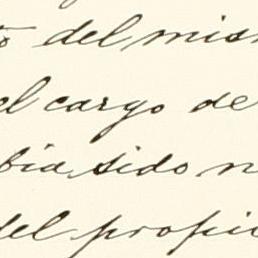 o del mism
el cargo de
bia sido n
del propio